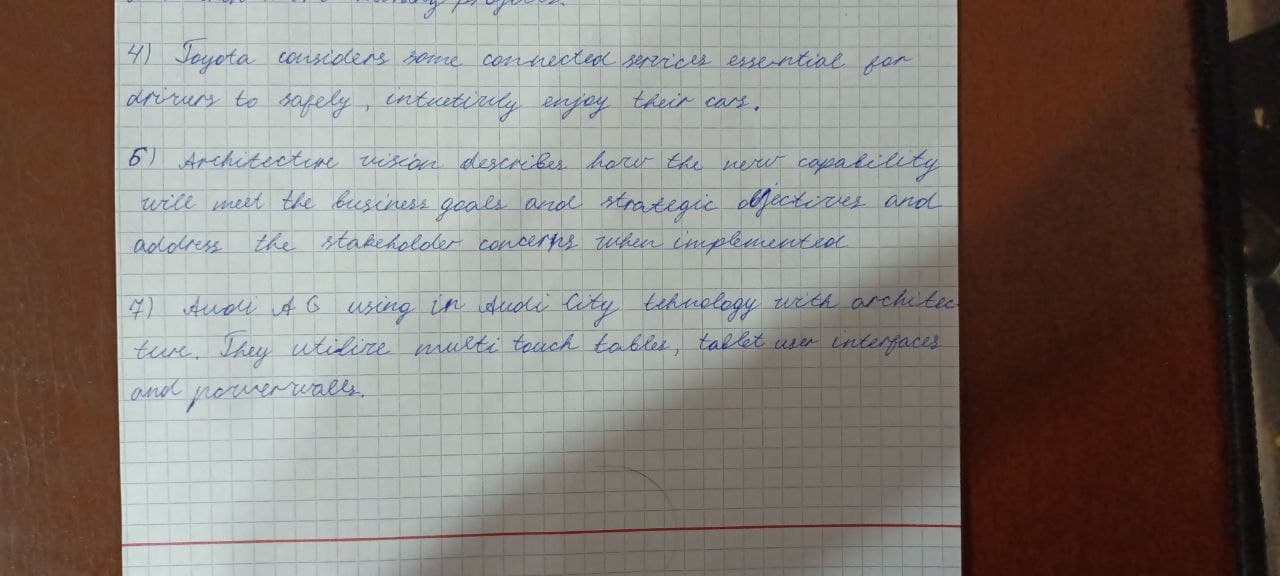 4) Toyota considers some connected services essential for
drivers to safely, intuetivly enjoy their cars.
5) Architecture vision describes how the new capability
will meet the business goals and strategic objectives and
address the stakeholder concerns when implemented
7) Audi AG using in Audi City tehnology with architec
ture. They utilize multi touch tables, tablet user interfaces
and powerwalls.